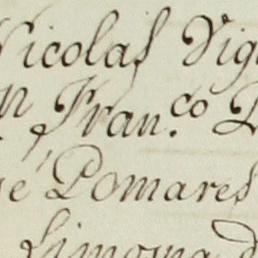 Nicolas Vig
n Fran.co
é Pomares
Limorna d